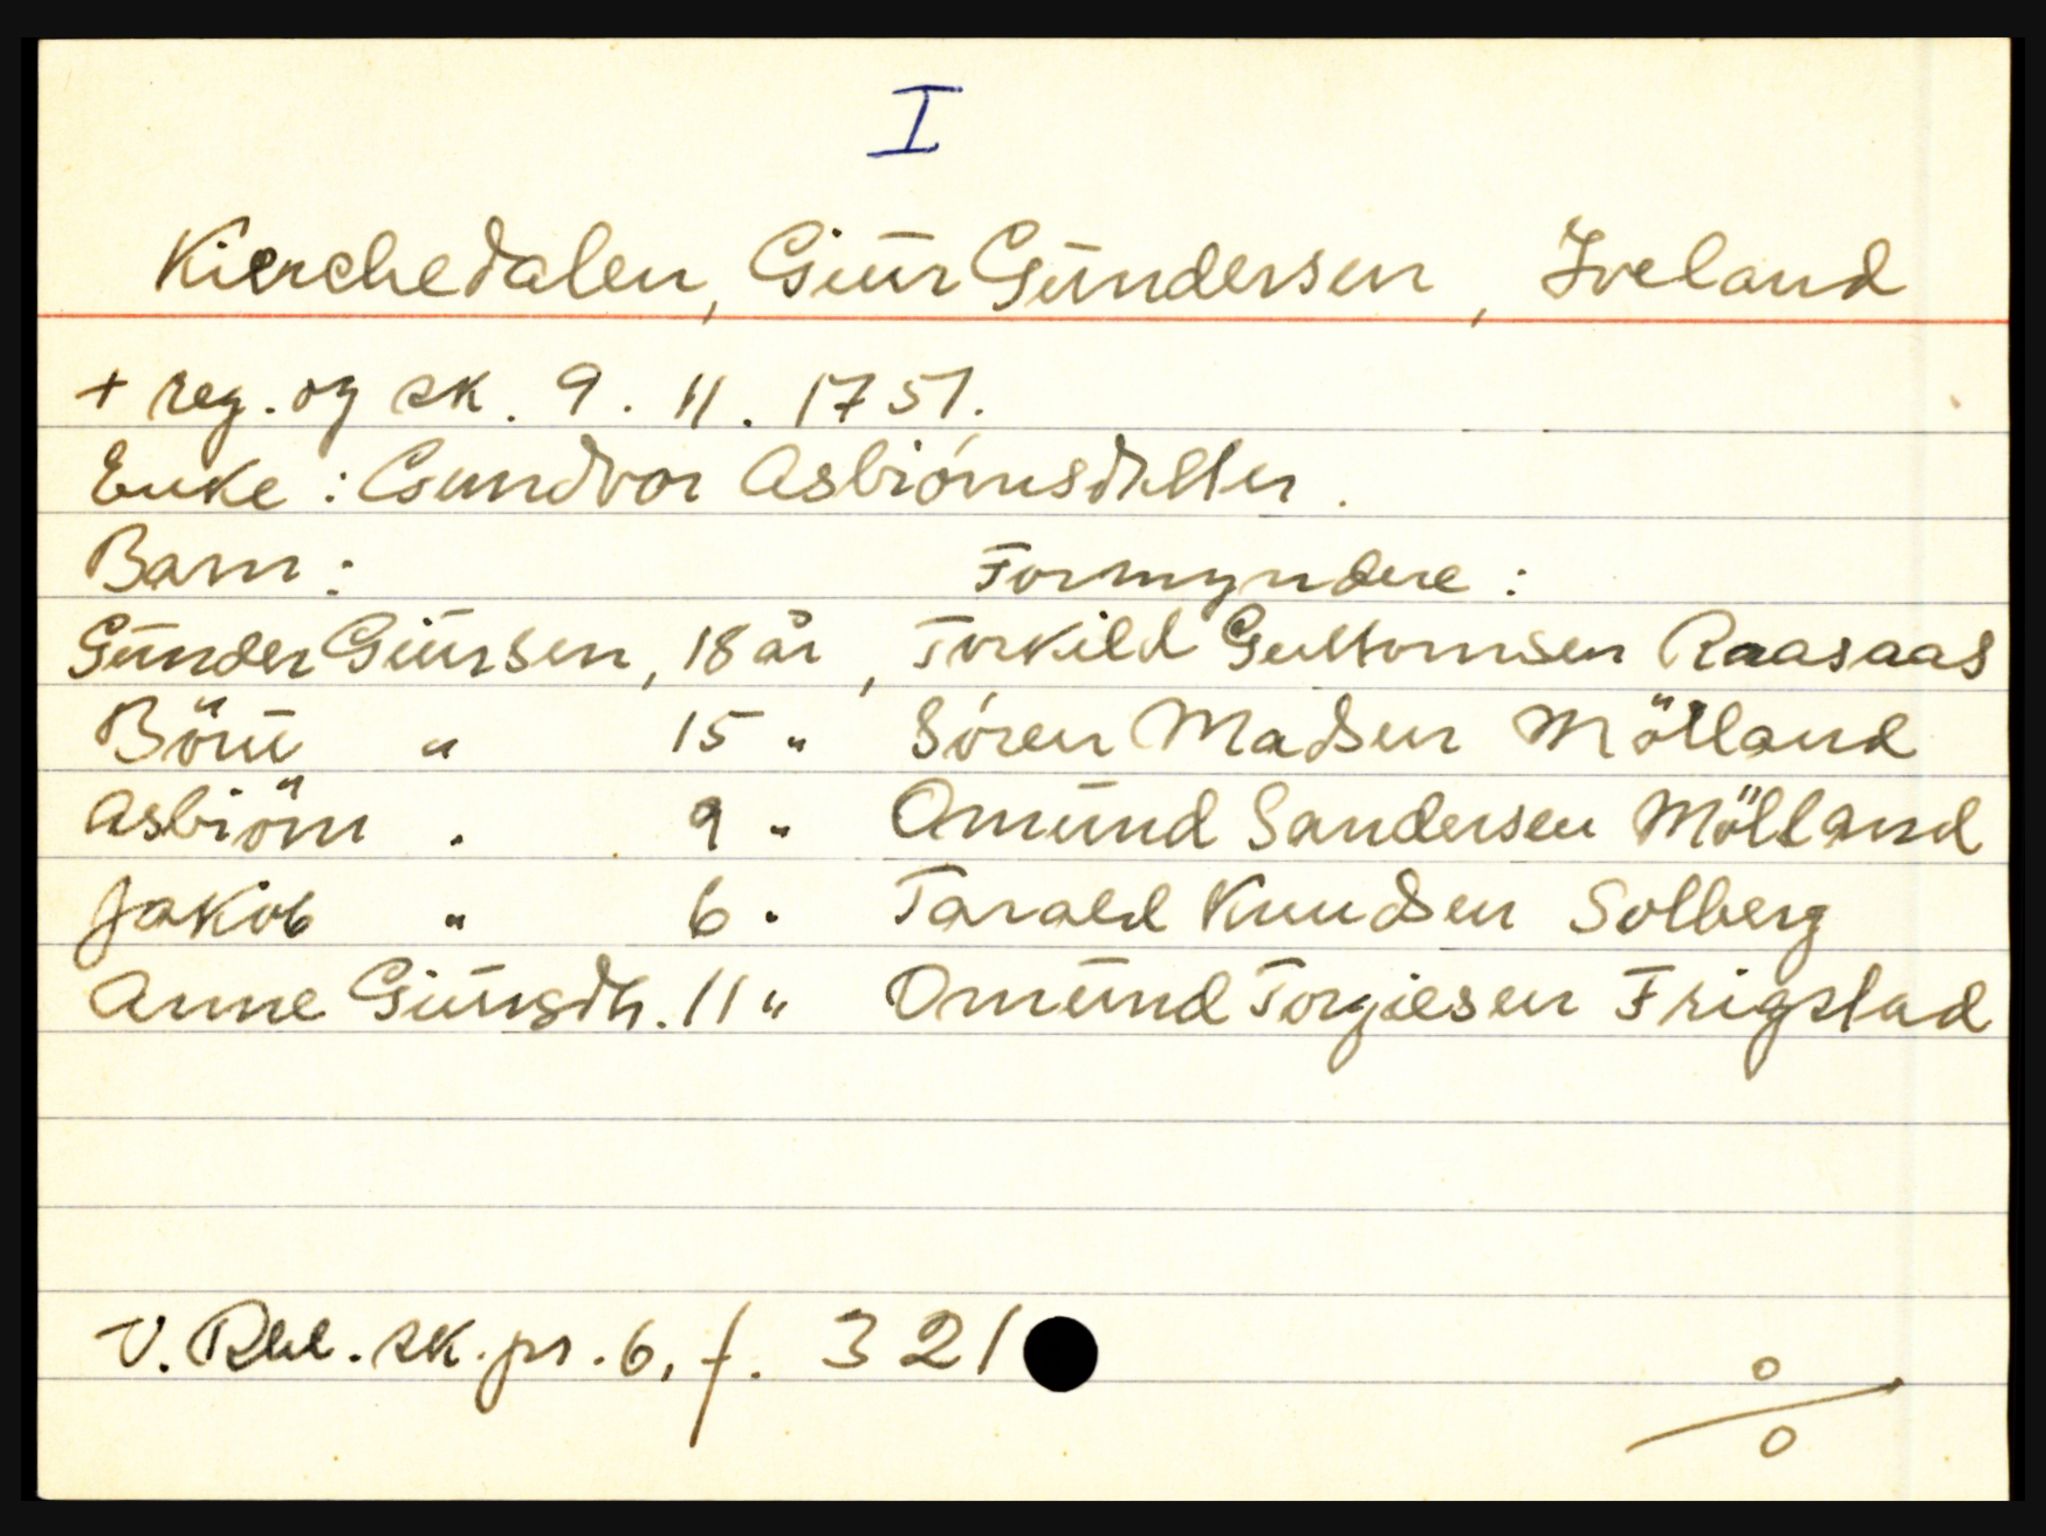 I
Kierchedalen, Giur Gundersen, Iveland
+ reg. og sk. 9. 11. 1751.
Enke: Gundvor Asbiörnsdatter.
Barn: Formyndere:
Gunder Giursen, 18 år, Torkild Guttormsen Raasaas
Böru " 15 " Sören Madsen Mölland
Asbiörn . 9 " Omund Sandersen Mölland
Jakob " 6 . Tarald Knudsen Solberg
Anne Giursdtr. 11 " Omund Torgiesen Frigstad
V. Rbl. sk. pr. 6, f. 321
%